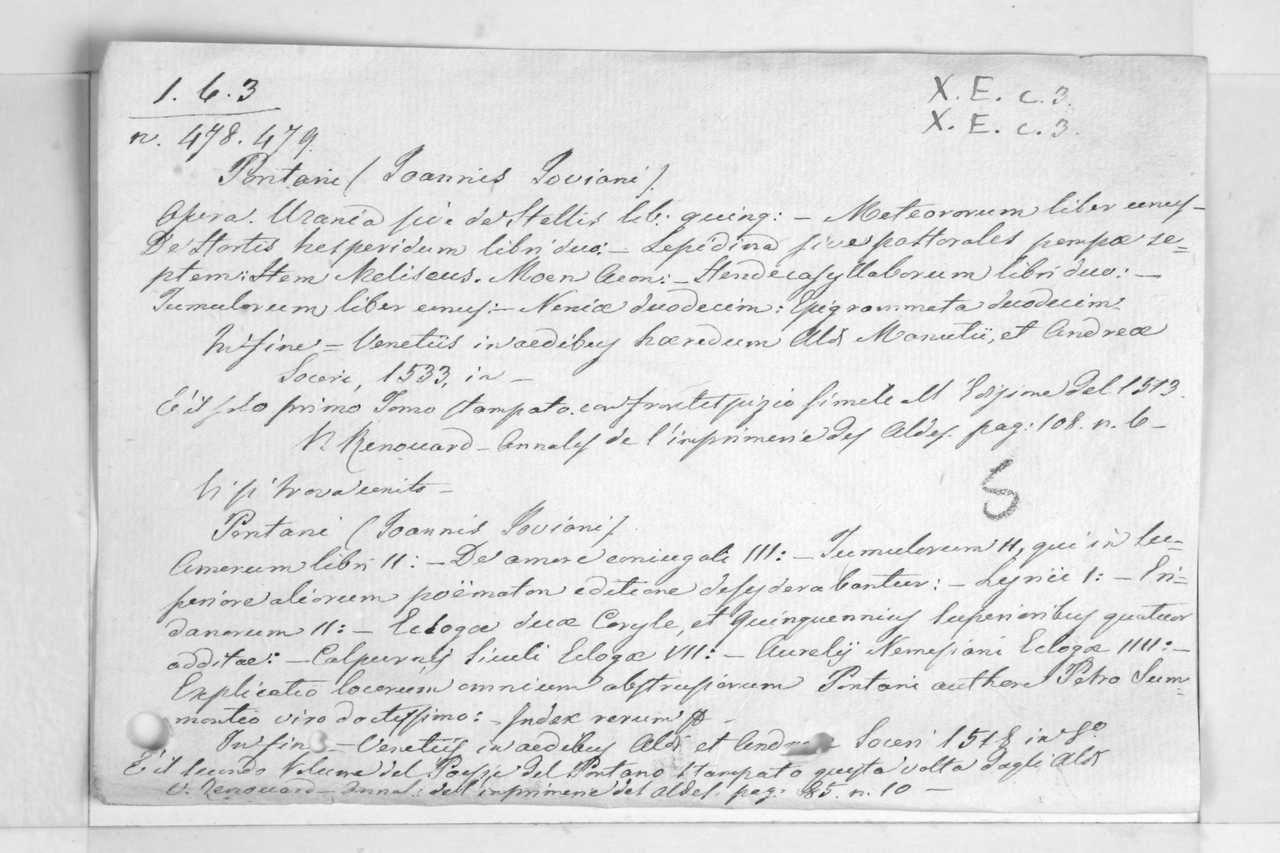 1. 6. 3
n. 478. 479.
X. E. c. 3.
X. E. c. 3.
Pontani (Joannis Joviani).
Opera. Urania sive de Stellis lib: quinq: – Meteororum liber unus –
De Hortis hesperidum libri duo: – Lepidina sive pastorales pompæ se=
ptem: Item Meliseus. Maeon Acon: – Hendecasyllaborum libri duo: –
Tumulorum liber unus: – Neniæ duodecim: Epigrammata duodecim
In fine = Venetiis in aedibus hæredum Aldi Manutii, et Andreæ
Soceri, 1533, in –
È il solo primo Tomo stampato con frontespizio simile all' Edizione del 1513.
V. Renouard – Annales de l'imprimerie des Aldes. pag: 108. n. 6 –
Vi si trova unito –
S
Pontani (Joannis Joviani).
Amorum libri II: – De amore coniugali III: – Tumulorum II, qui in su=
periore aliorum poëmaton editione desyderabantur: – Lyrici I: – Eri=
danorum II: – Eclogæ duæ Coryle, et Quinquennius superioribus quatuor
additae: – Calpurnij Siculi Eclogæ VII: – Aurelij Nemesiani Eclogæ IIII: –
Explicatio locorum omnium abstrusiorum Pontani authore Petro Sum=
montio viro doctissimo: – Index rerum –
In fine – Venetiis in aedibus Aldi et Andreæ Soceri 1518 in 8º
È il secondo Volume del Poesie del Pontano stampato questa volta dagli Aldi
V. Renouard – Annal: de l'imprimerie des Aldes. pag: 85. n. 10 –